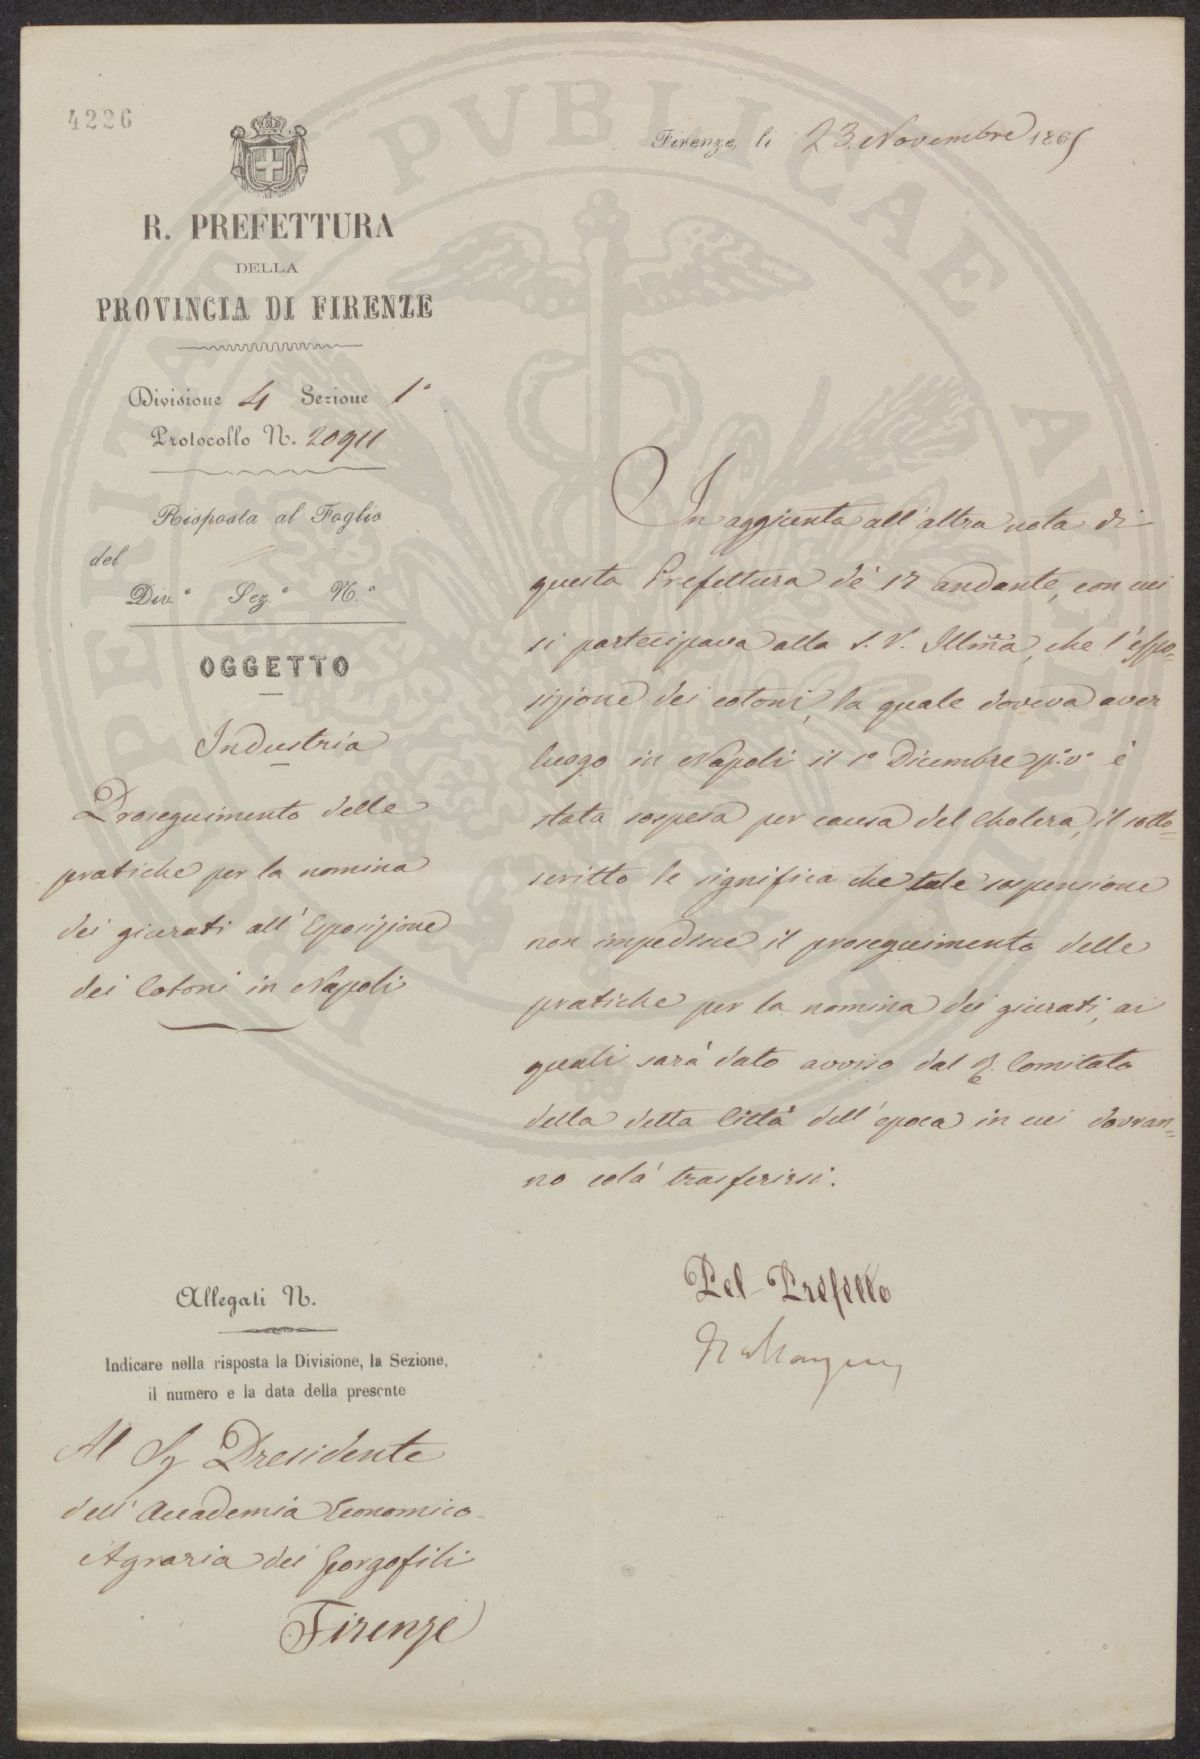 4226
Firenze, li 23. Novembre 1865
R. PREFETTURA
DELLA
PROVINCIA DI FIRENZE
Divisione 4 Sezione 1ª
Protocollo N. 20911
Risposta al Foglio
del
Div.e Sez.e N.o
OGGETTO
Industria
Proseguimento delle
pratiche per la nomina
dei giurati all'Esposizione
dei Cotoni in Napoli
In aggiunta all'altra nota di
questa Prefettura de' 17 andante, con cui
si partecipava alla S. V. Illma, che l'espo=
sizione dei cotoni, la quale doveva aver
luogo in Napoli il 1o Dicembre p.o v.o è
stata sospesa per causa del Cholera, il sotto=
scritto le significa che tale sospensione
non impedisce il proseguimento delle
pratiche per la nomina dei giurati, ai
quali sarà dato avviso dal R. Comitato
della detta Città dell'epoca in cui dovran=
no colà trasferirsi.
Pel Prefetto
Allegati N.
Indicare nella risposta la Divisione, la Sezione,
il numero e la data della presente
Al Sg Presidente
dell'Accademia Economico-
Agraria dei Georgofili
Firenze